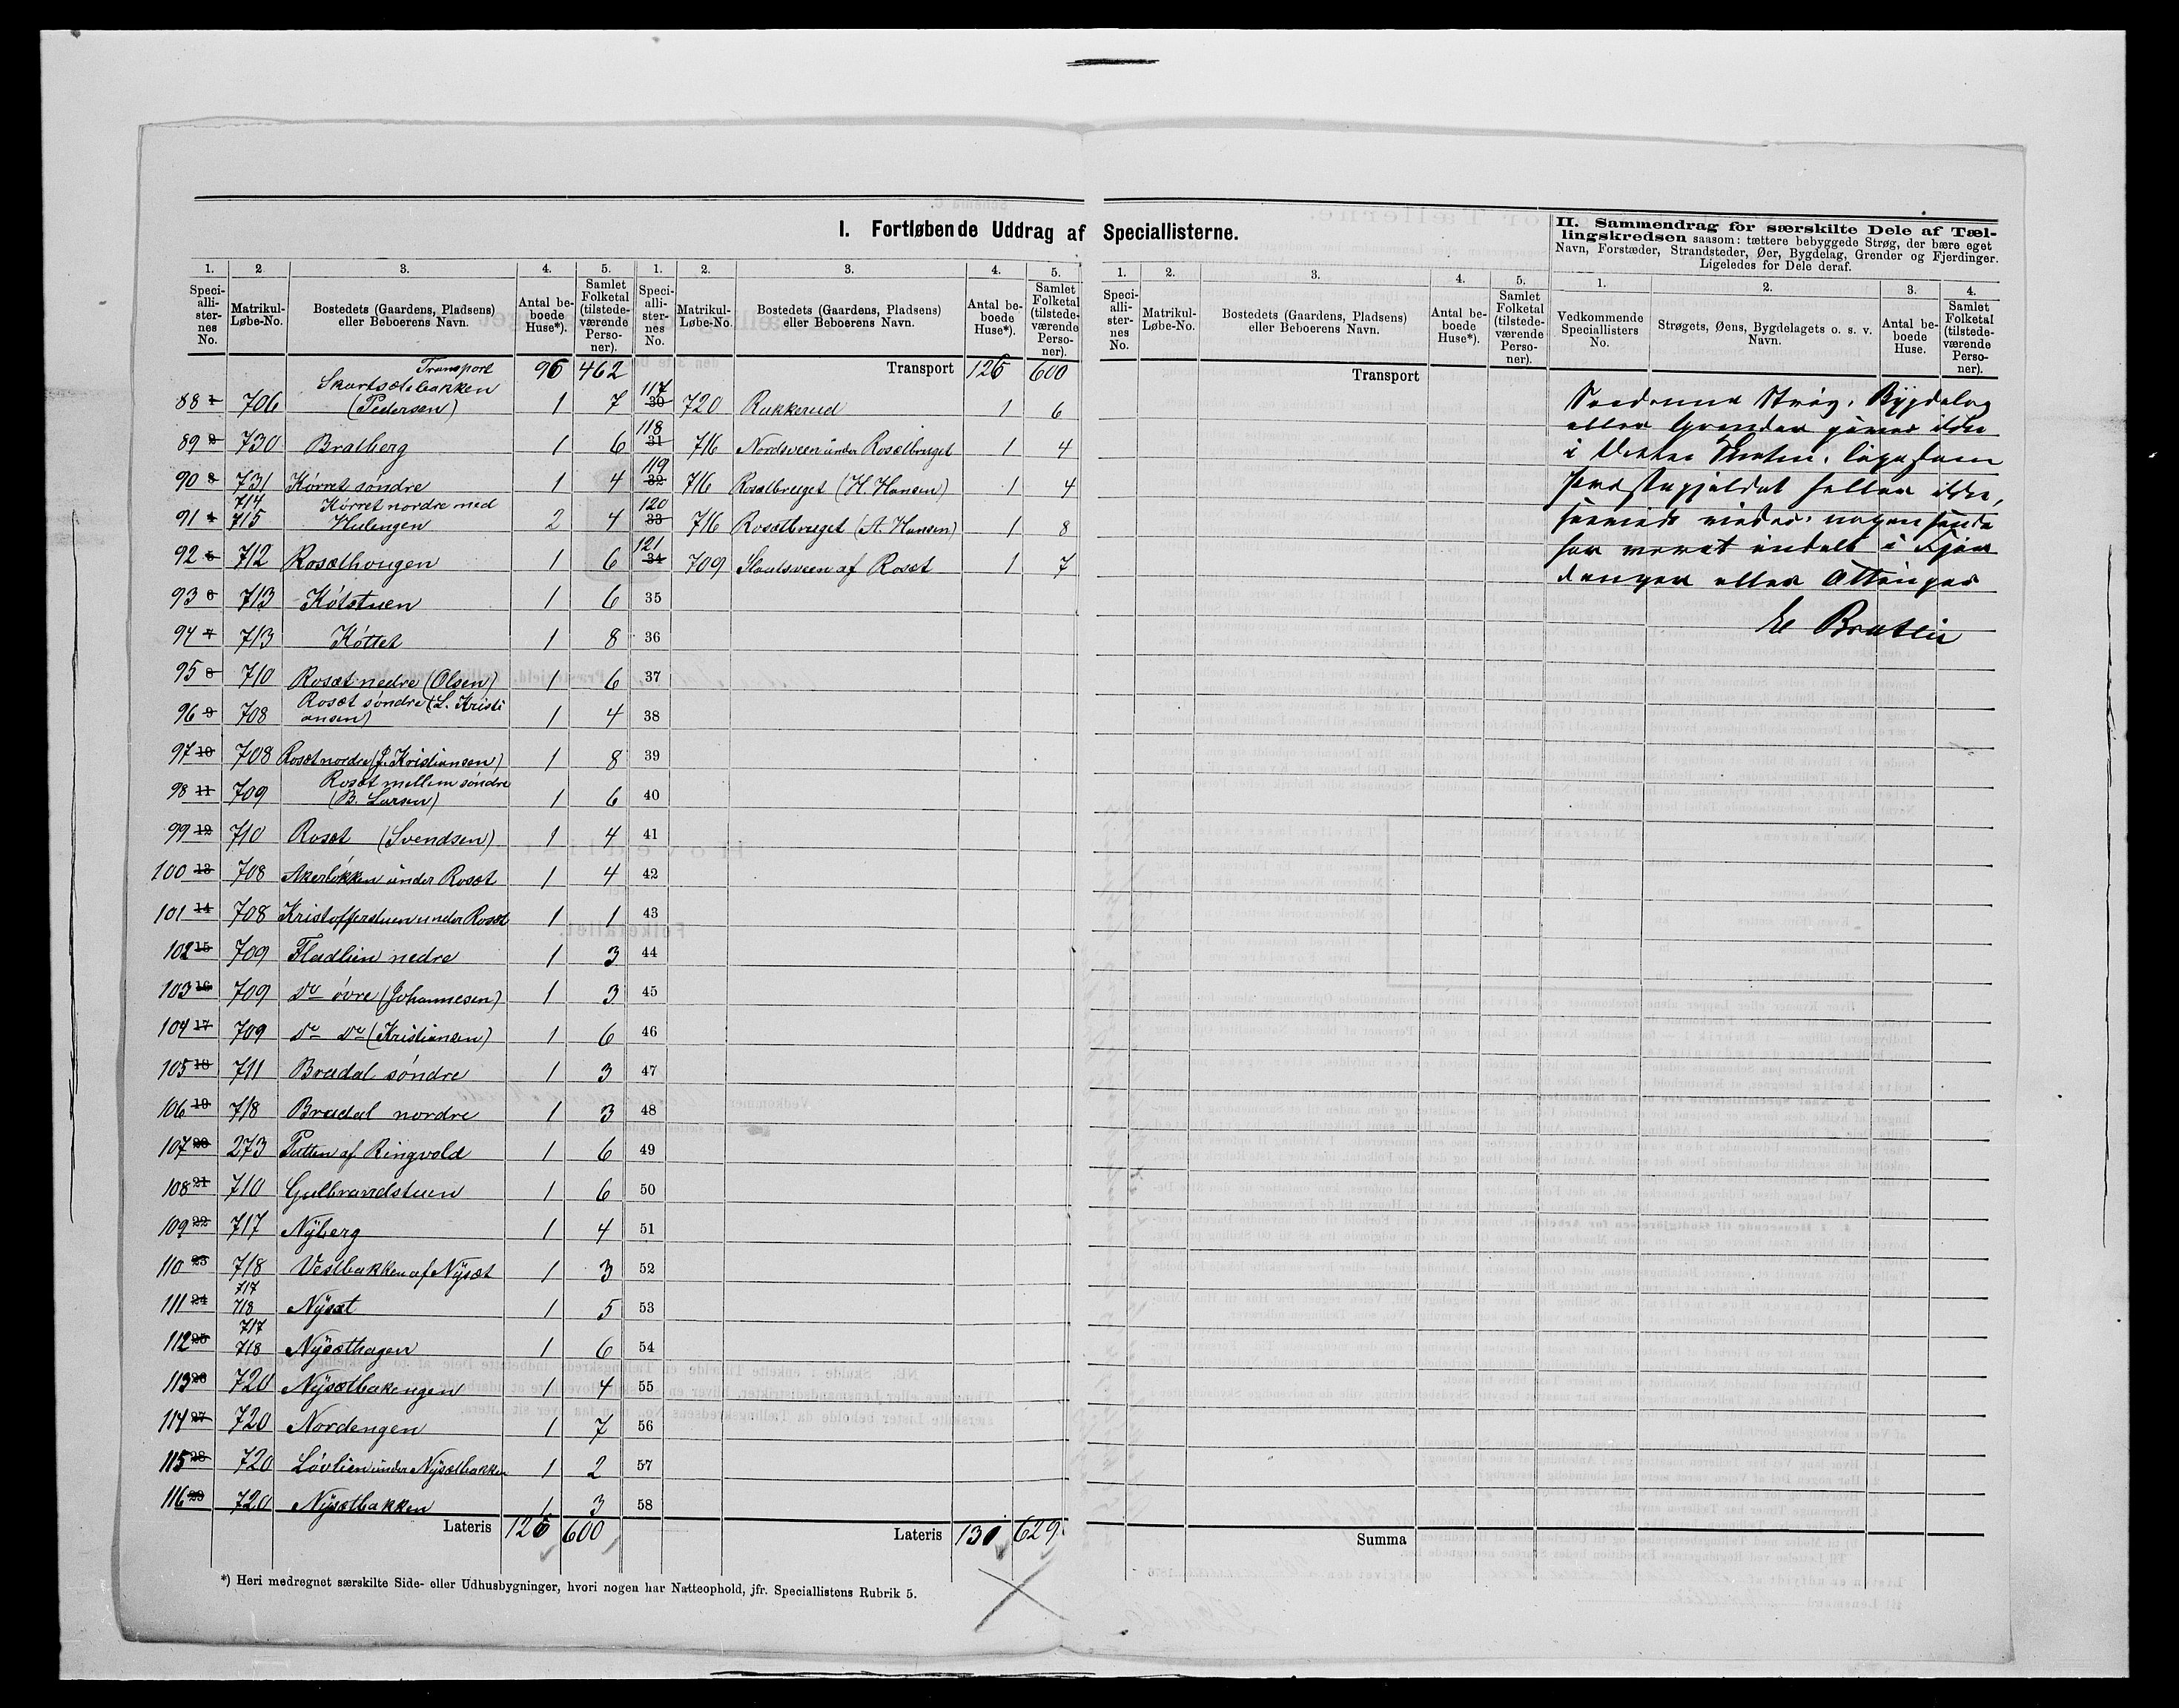 I. Fortløbende Uddrag af Speciallisterne.
1. 2. 3. 4. 5.
Speciallisternes No. Matrikul-Løbe-No. Bostedets (Gaardens, Pladsens) eller Beboerens Navn. Antal beboede Huse*). Samlet Folketal (tilstedeværende Personer).
Transport 96 462
88 1 706 Skartsætebakken (Pedersen) 1 7
89 2 730 Bratberg 1 6
90 3 731 Kórret søndre 1 4
91 4 714 715 Kórret nordre med Hulengen 2 4
92 5 712 Rosæthougen 1 6
93 6 713 Kótstuen 1 6
94 7 713 Kóttet 1 8
95 8 710 Rosæt nedre (Olsen) 1 6
96 9 708 Rosæt søndre (L. Kristiansen) 1 4
97 10 708 Rosæt nordre (J. Kristiansen) 1 8
98 11 709 Rosæt mellem søndre (B. Larsen) 1 6
99 12 710 Rosæt (Svendsen) 1 4
100 13 708 Akerløkken under Rosæt 1 4
101 14 708 Kristofferstuen under Rosæt 1 1
102 15 709 Fladlien nedre 1 3
103 16 709 Do øvre (Johannesen) 1 3
104 17 709 Do Do (Kristiansen) 1 6
105 18 711 Bradal søndre 1 3
106 19 718 Bradal nordre 1 3
107 20 273 Putten af Ringvold 1 6
108 21 710 Gulbrandstuen 1 6
109 22 717 Nÿberg 1 4
110 23 718 Vestbakken af Nÿsæt 1 3
111 24 717 718 Nÿsæt 1 5
112 25 717 718 Nÿsæthagen 1 6
113 26 720 Nÿsætbakengen 1 4
114 27 720 Nordengen 1 7
115 28 720 Lóvlien under Nÿsætbakken 1 2
116 29 720 Nÿsætbakken 1 3
Lateris 126 600
*) Heri medregnet særskilte Side- eller Udhusbygninger, hvori nogen har Natteophold, jfr. Speciallistens Rubrik 5.
1. 2. 3. 4. 5.
Speciallisternes No. Matrikul-Løbe-No. Bostedets (Gaardens, Pladsens) eller Beboerens Navn. Antal beboede Huse*). Samlet Folketal (tilstedeværende Personer).
Transport 126 600
117 30 720 Rukkerud 1 6
118 31 716 Nordsveen under Rosætbruget 1 4
119 32 716 Rosætbruget (H. Hansen) 1 4
120 33 716 Rosætbruget (A. Hansen) 1 8
121 34 709 Slaatsveen af Rosæt 1 7
35
36
37
38
39
40
41
42
43
44
45
46
47
48
49
50
51
52
53
54
55
56
57
58
Lateris 131 629
1. 2. 3. 4. 5.
Speciallisternes No. Matrikul-Løbe-No. Bostedets (Gaardens, Pladsens) eller Beboerens Navn. Antal beboede Huse*). Samlet Folketal (tilstedeværende Personer).
Transport
Summa
II. Sammendrag for særskilte Dele af Tællingskredsen saasom: tættere bebyggede Strøg, der bære eget
Navn, Forstæder, Strandsteder, Øer, Bygdelag, Grender og Fjerdinger.
Ligeledes for Dele deraf.
1. 2. 3. 4.
Vedkommende Speciallisters No. Strøgets, Øens, Bygdelagets o. s. v. Navn. Antal beboede Huse. Samlet Folketal (tilstedeværende Personer).
Saadanne Strøg, Bygdelag
eller Grender gives ikke
i dette ligesom
Præstegjeldet heller ikke,
saavidt vides, nogensinde
har været inddelt i Fjer
dinger eller Ottinger
E Braten